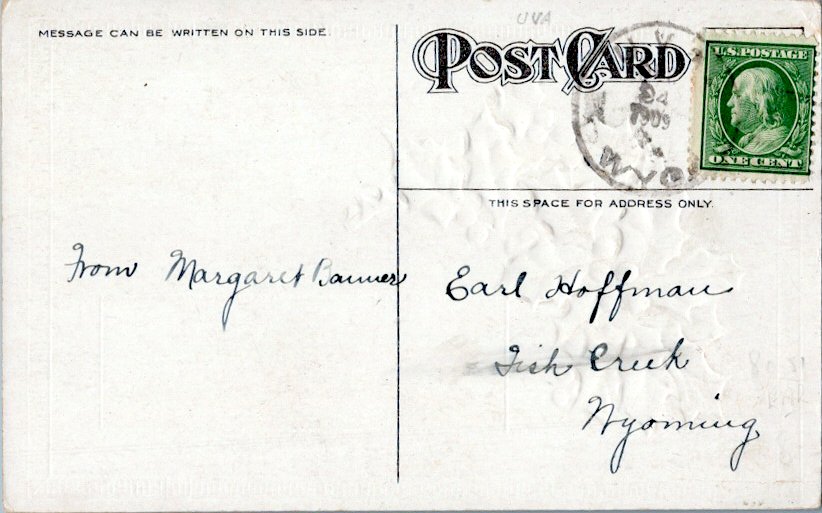 UVA
MESSAGE CAN BE WRITTEN ON THIS SIDE
POST CARD
U.S. POSTAGE
ONE CENT
1909
WYO
THIS SPACE FOR ADDRESS ONLY.
From Margaret Banner
Earl Hoffman
Fish Creek
Wyoming